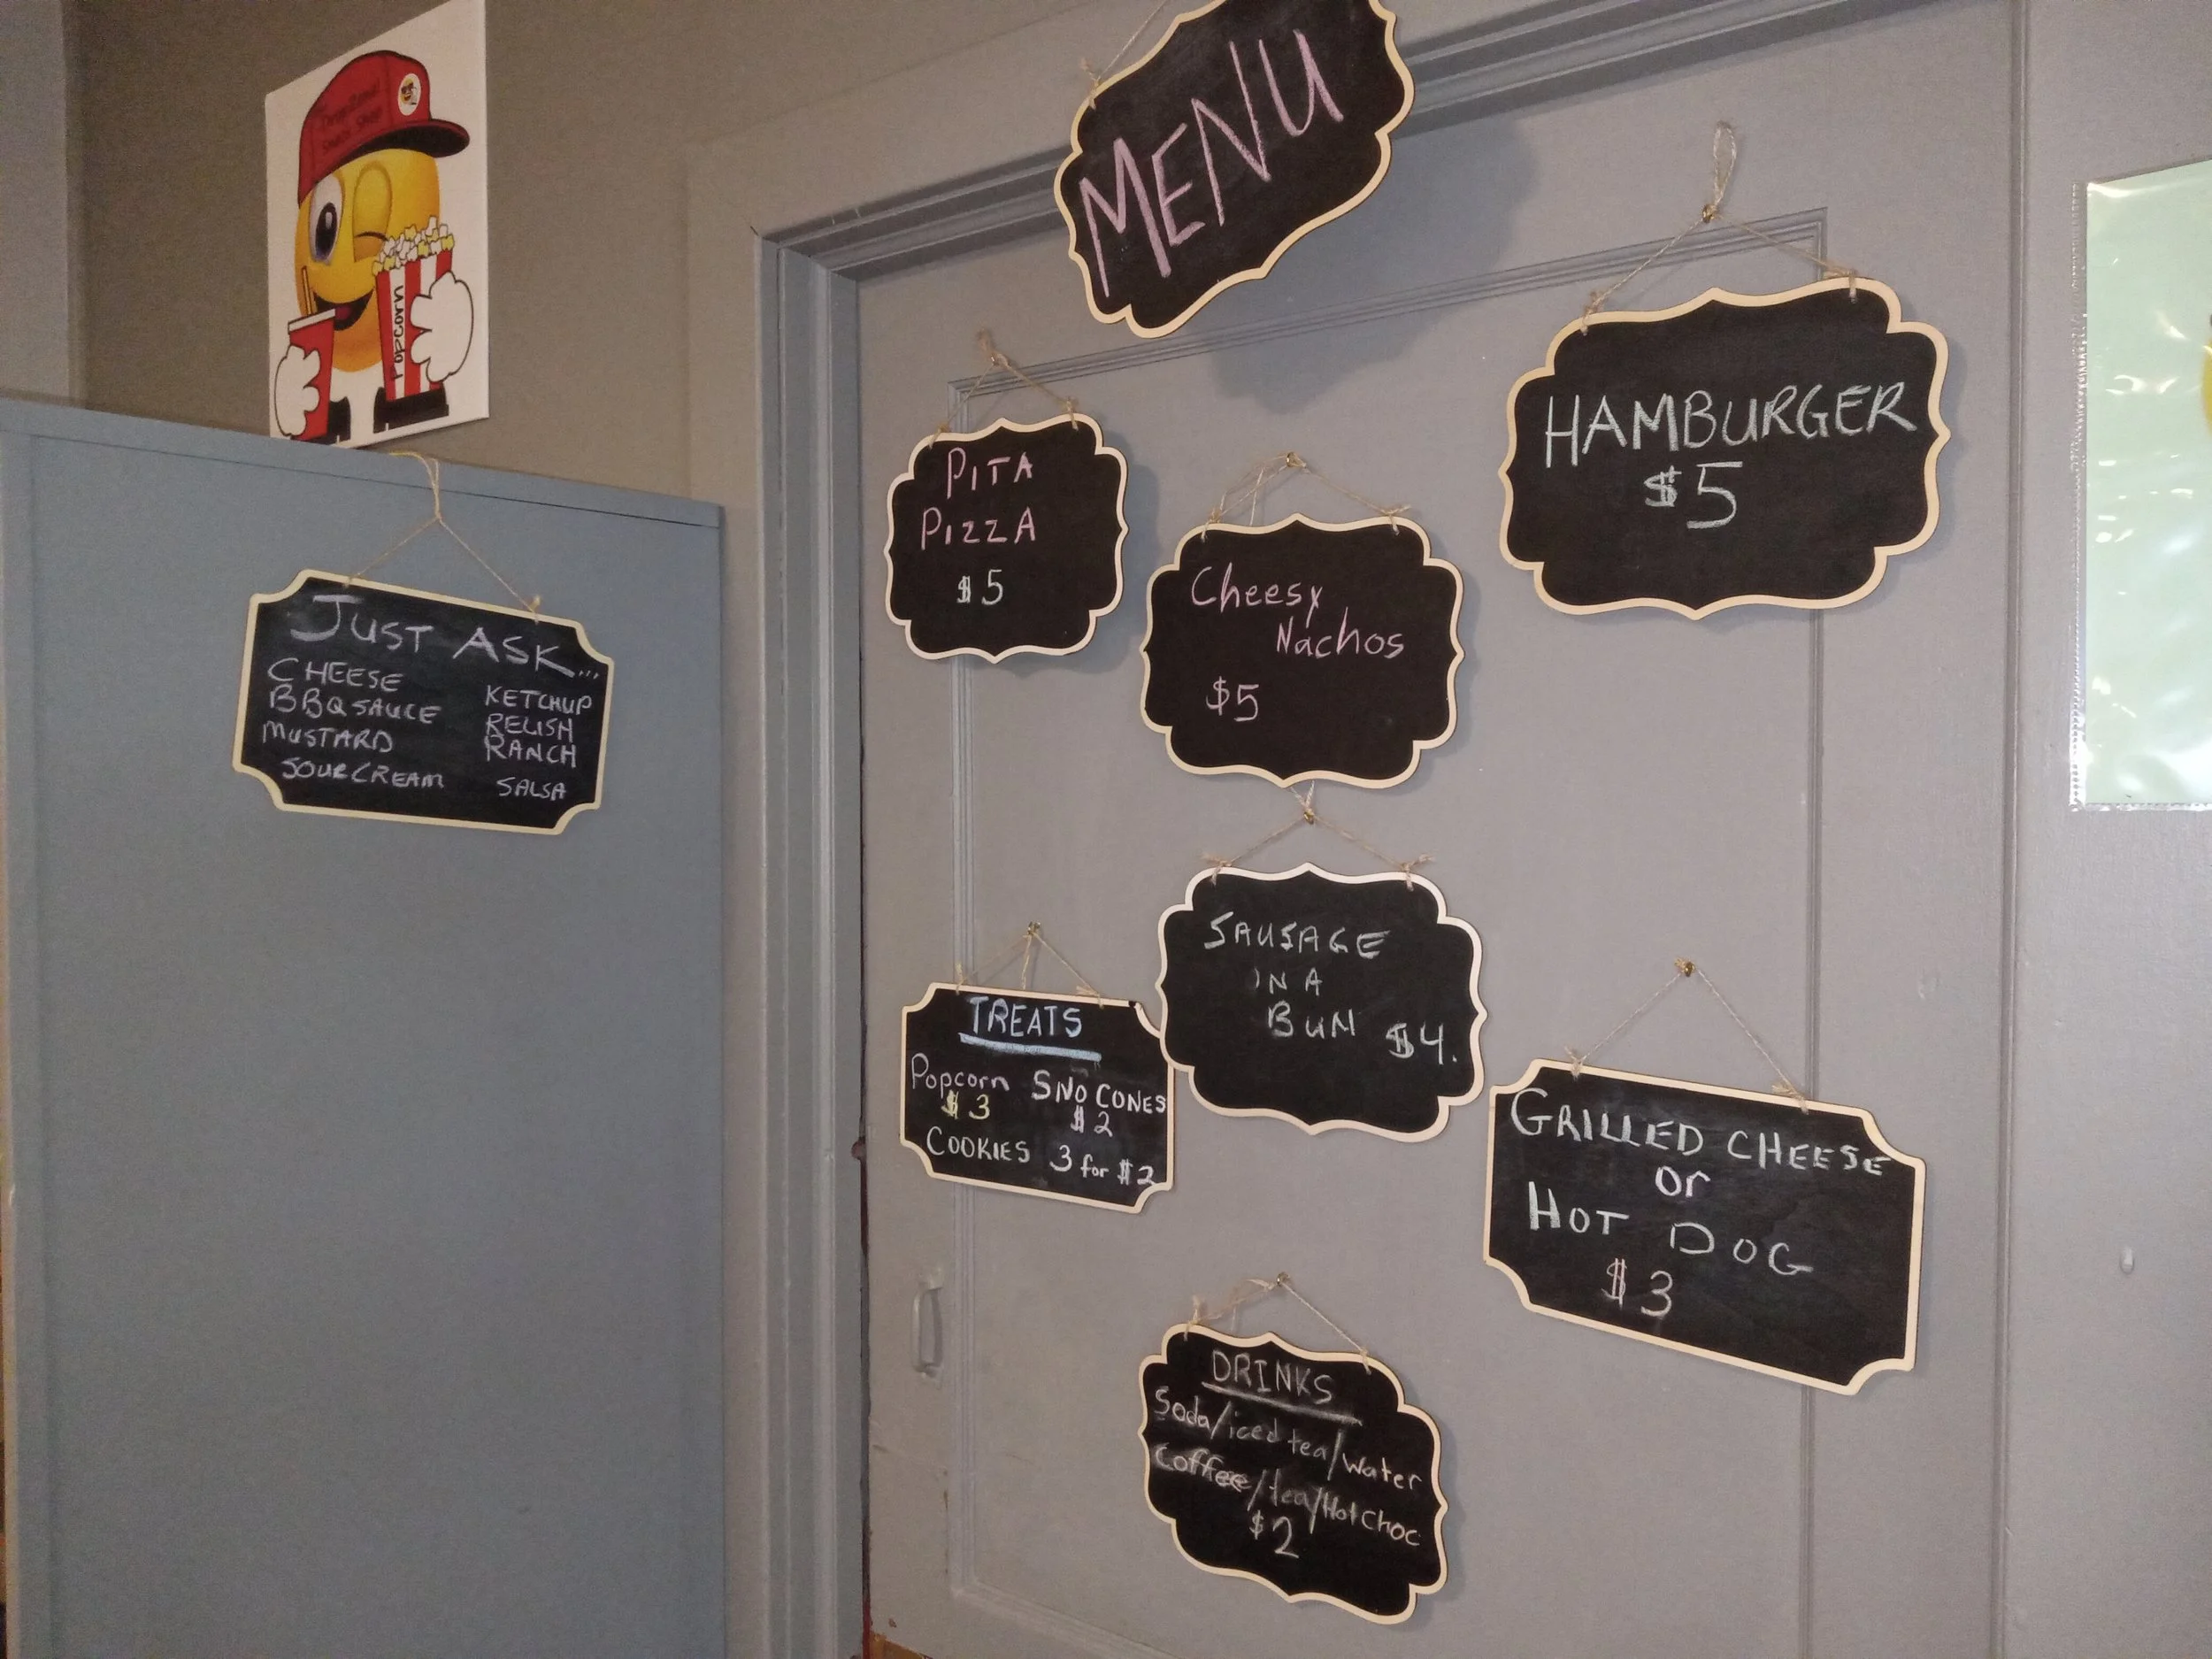 MENU
Popcorn
HAMBURGER
$5
PITA
PIZZA
$5
Cheesy
Nachos
$5
JUST ASK...
CHEESE
BBQ SAUCE
MUSTARD
SOUR CREAM
KETCHUP
RELISH
RANCH
SALSA
SAUSAGE
IN A
BUN $4.
TREATS
Popcorn SNO CONES
$3 $2
COOKIES 3 for $2
GRILLED CHEESE
or
HOT DOG
$3
DRINKS
Soda/iced tea/Water
Coffee/tea/Hot Choc
$2